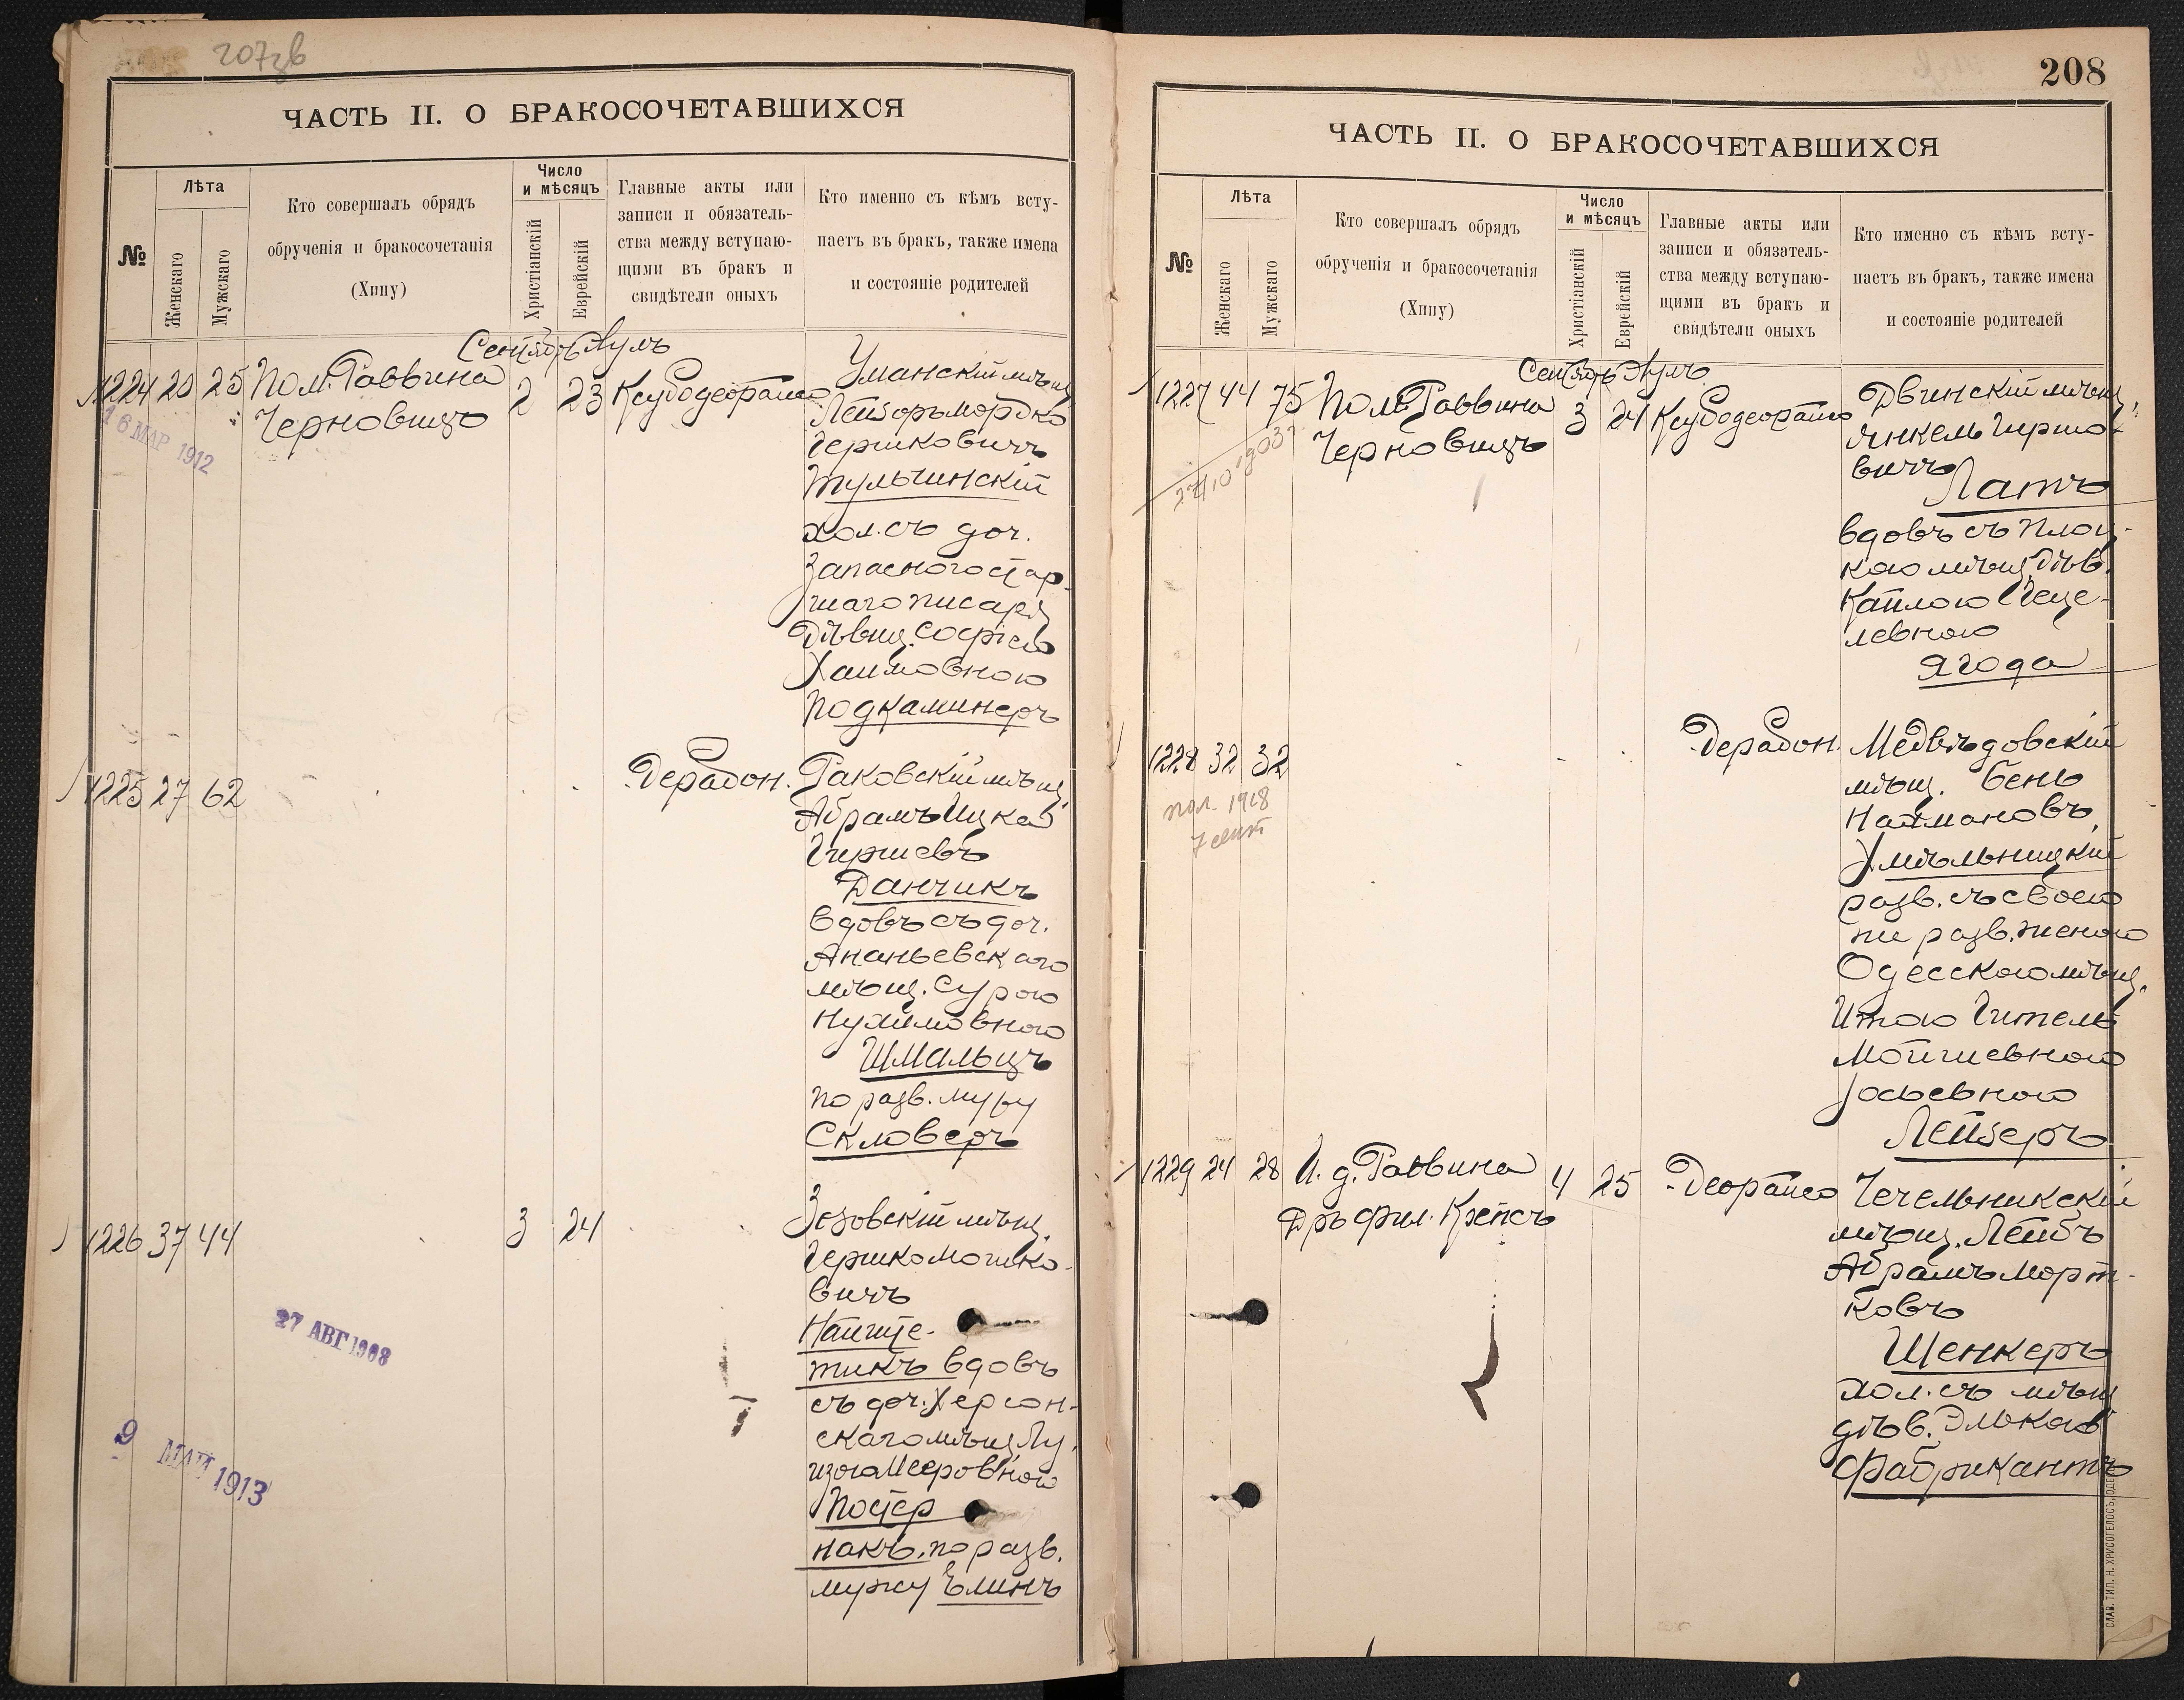 207зв
ЧАСТЬ II. О БРАКОСОЧЕТАВШИХСЯ
№
Лѣта
Женскаго
Мужскаго
Кто совершалъ обрядъ
обрученія и бракосочетанія
(Хипу)
Число
и мѣсяцъ
Христіанскій
Еврейскій
Главные акты или
записи и обязатель-
ства между вступаю-
щими въ бракъ и
свидѣтели оныхъ
Кто именно съ кѣмъ всту-
паетъ въ бракъ, также имена
и состояніе родителей
Сентябрь Аулъ
1224 20 25 Пом. Раввина 2 23
Черновицъ
16 МАР 1912
Уманскій мѣщ.
Лейзоръ Мордко
Гершковичъ
Тульчинскій
хол. съ доч.
Запасного стар-
шаго писаря
Дѣвиц. Софіею
Хаимовною
Подкаминеръ
1225 27 62
Дерабон.
Раковскій мѣщ.
Абрамъ Ицка
Гиршевъ
Данчикъ
вдовъ съ доч.
Ананьевскаго
мѣщ. Сурою
Нухимовною
Шмальцъ
по разв. мужу
Скловеръ
1226 37 44 3 24
27 АВГ 1908
9 МАЙ 1913
Зозовскій мѣщ.
Гершко Мошко-
вичъ
Найште-
тикъ вдовъ
съ доч. Херсон-
скаго мѣщ. Лу-
изою Мееровною
Постер
накъ. по разв.
мужу Ѣлинъ
208
ЧАСТЬ II. О БРАКОСОЧЕТАВШИХСЯ
№
Лѣта
Женскаго
Мужскаго
Кто совершалъ обрядъ
обрученія и бракосочетанія
(Хипу)
Число
и мѣсяцъ
Христіанскій
Еврейскій
Главные акты или
записи и обязатель-
ства между вступаю-
щими въ бракъ и
свидѣтели оныхъ
Кто именно съ кѣмъ всту-
паетъ въ бракъ, также имена
и состояніе родителей
Сентябрь Аулъ
1227 44 75 Пом. Раввина 3 24
Черновицъ
Двинскій мѣщ.
Янкель Гиршо-
вичъ
Латъ
вдовъ съ Плоц-
кою мѣщ. Дѣв.
Кайлою Геце-
левною
Ягода
1228 32 32
пол. 1918
7 сент
Дерабон.
Медвѣдовскій
мѣщ. Бень
Наймановъ
Хмѣльницкій
разв. съ своею
же разв. женою
Одесскою мѣщ.
Итою Гитель
Мойшевною
Іосьевною
Лейзеръ
1229 24 28 И. д. Раввина 4 25 Деорайсо
Дръ Фил. Крепсъ
Чечельникскій
мѣщ. Лейбъ
Абрамъ Морт-
ковъ
Шенкеръ
хол. съ мѣщ
дѣв. Элькою
Фабрикантъ
СЛАВ. ТИП. Н. ХРИСОГЕЛОСЪ, ОДЕ